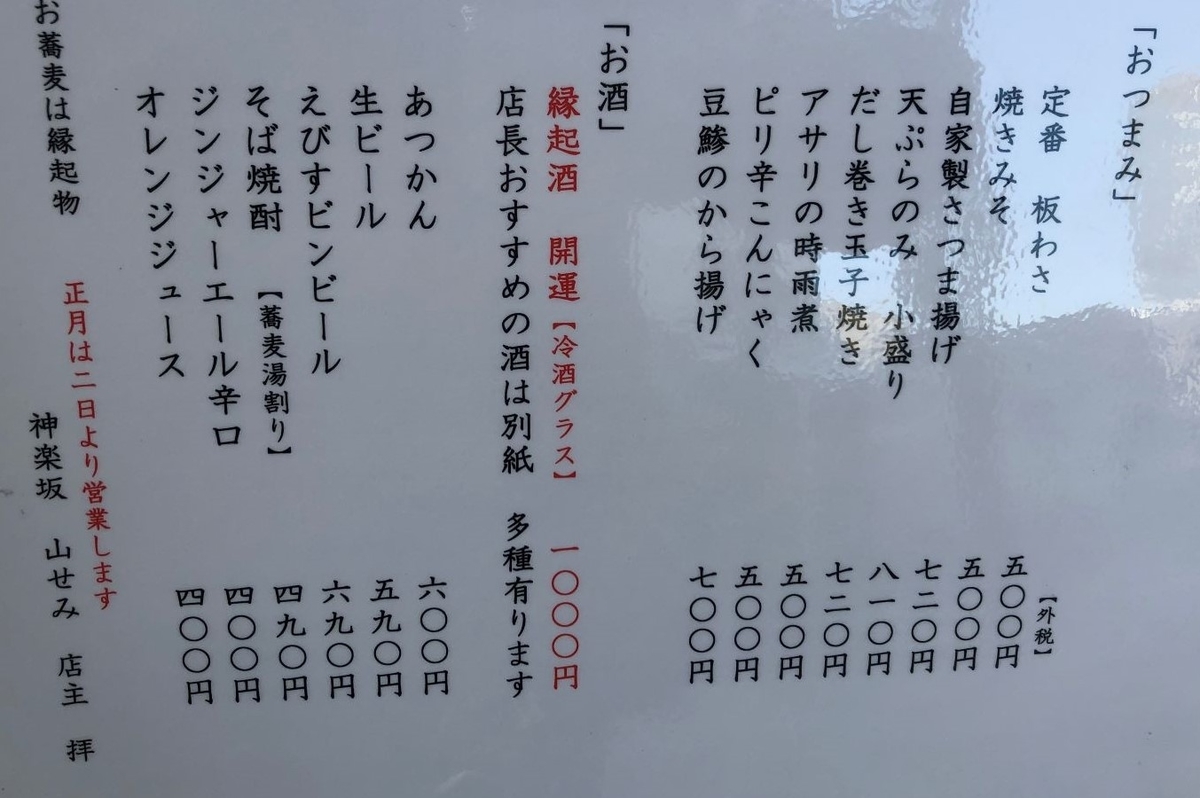 「おつまみ」
【外税】
定番　板わさ　五〇〇円
焼きみそ　五〇〇円
自家製さつま揚げ　七二〇円
天ぷらのみ　小盛り　八一〇円
だし巻き玉子焼き　七二〇円
アサリの時雨煮　五〇〇円
ピリ辛こんにゃく　五〇〇円
豆鯵のから揚げ　七〇〇円
「お酒」
縁起酒　開運【冷酒グラス】　一〇〇〇円
店長おすすめの酒は別紙　多種有ります
あつかん　六〇〇円
生ビール　五九〇円
えびすビンビール　六九〇円
そば焼酎【蕎麦湯割り】　四九〇円
ジンジャーエール辛口　四〇〇円
オレンジジュース　四〇〇円
お蕎麦は縁起物　正月は二日より営業します
神楽坂　山せみ　店主　拝